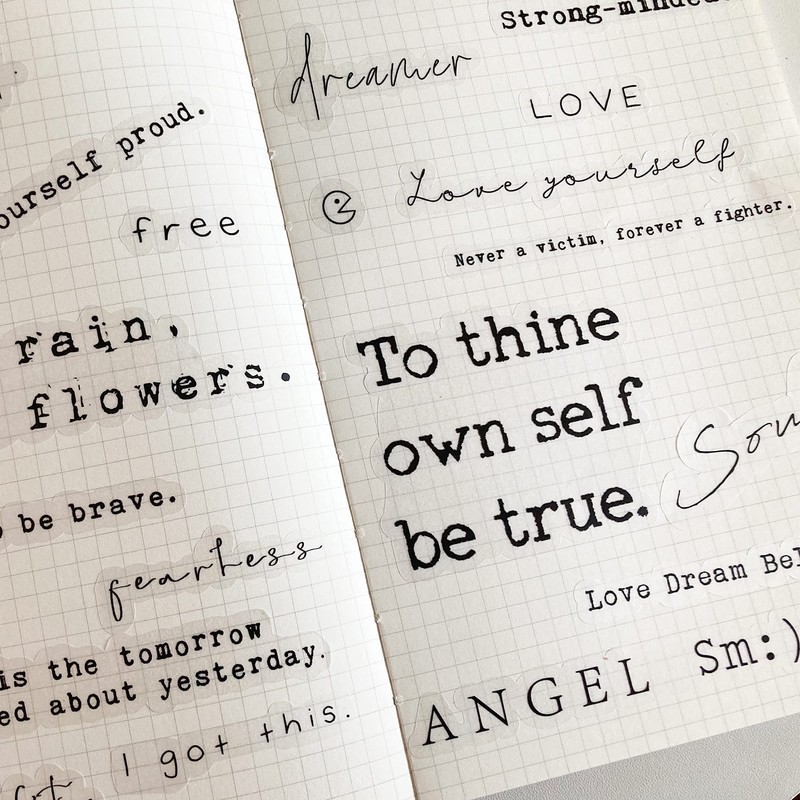 ourself proud.
free
rain,
flowers.
be brave.
fearless
is the tomorrow
ed about yesterday.
I got this.
Strong-minded
dreamer
LOVE
Love yourself
Never a victim, forever a fighter.
To thine
own self
be true.
Love Dream Bel
ANGEL Sm:)